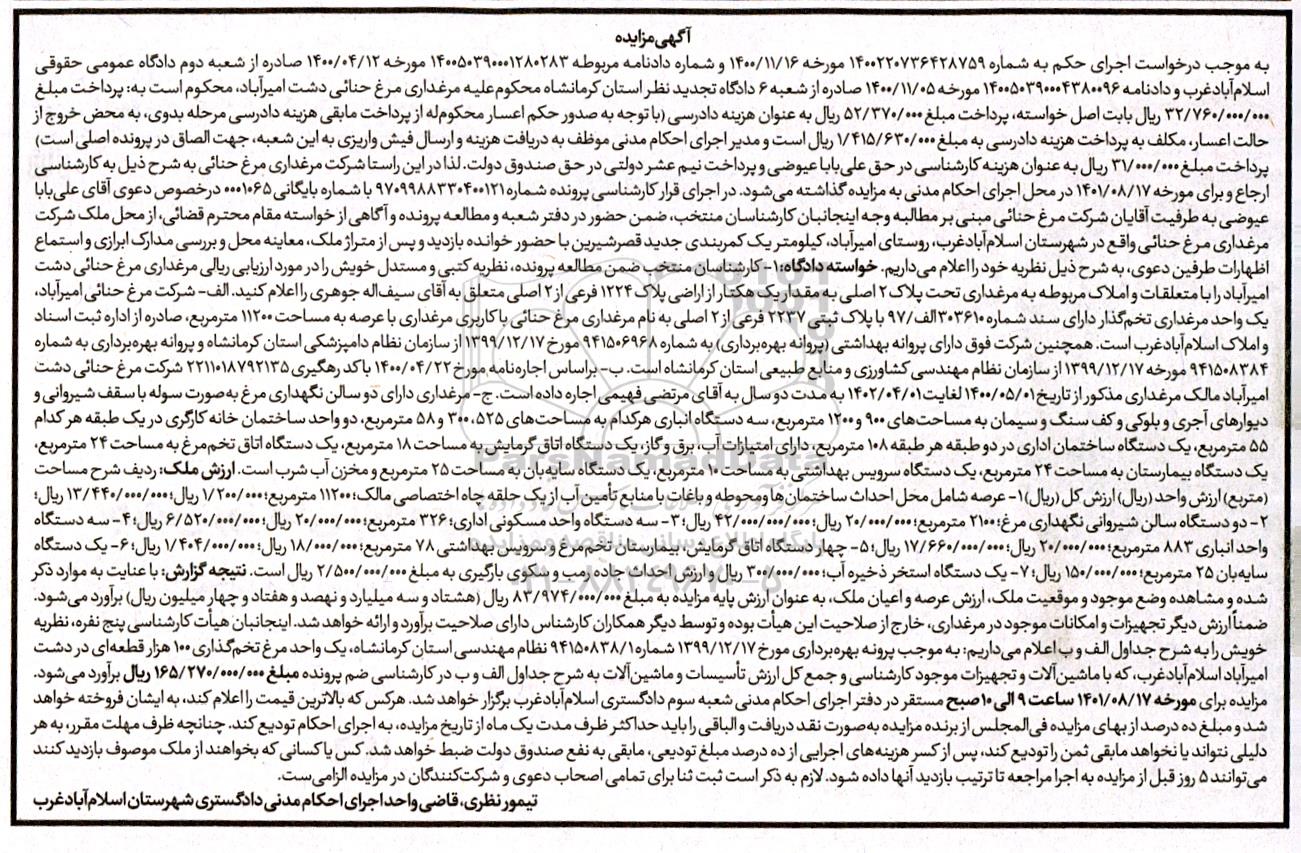 آگهی مزایده
به موجب درخواست اجرای حکم به شماره ۱۴۰۰۲۲۰۷۳۶۴۲۸۷۵۹ مورخه ۱۴۰۰/۱۱/۱۶ و شماره دادنامه مربوطه ۱۴۰۰۵۰۳۹۰۰۰۱۲۸۰۲۸۳ مورخه ۱۴۰۰/۰۴/۱۲ صادره از شعبه دوم دادگاه عمومی حقوقی
اسلام‌آبادغرب و دادنامه ۱۴۰۰۵۰۳۹۰۰۰۴۳۸۰۰۹۶ مورخه ۱۴۰۰/۱۱/۰۵ صادره از شعبه ۶ دادگاه تجدید نظر استان کرمانشاه محکوم‌علیه مرغداری مرغ حنائی دشت امیرآباد، محکوم است به: پرداخت مبلغ
۳۲/۷۶۰/۰۰۰/۰۰۰ ریال بابت اصل خواسته، پرداخت مبلغ ۵۲/۳۷۰/۰۰۰ ریال به عنوان هزینه دادرسی (با توجه به صدور حکم اعسار محکوم‌له از پرداخت مابقی هزینه دادرسی مرحله بدوی، به محض خروج از
حالت اعسار، مکلف به پرداخت هزینه دادرسی به مبلغ ۱/۴۱۵/۶۳۰/۰۰۰ ریال است و مدیر اجرای احکام مدنی موظف به دریافت هزینه و ارسال فیش واریزی به این شعبه، جهت الصاق در پرونده اصلی است)
پرداخت مبلغ ۳۱/۰۰۰/۰۰۰ ریال به عنوان هزینه کارشناسی در حق علی‌بابا عیوضی و پرداخت نیم عشر دولتی در حق صندوق دولت. لذا در این راستا شرکت مرغداری مرغ حنائی به شرح ذیل به کارشناسی
ارجاع و برای مورخه ۱۴۰۱/۰۸/۱۷ در محل اجرای احکام مدنی به مزایده گذاشته می‌شود. در اجرای قرار کارشناسی پرونده شماره ۹۷۰۹۹۸۸۳۳۰۴۰۰۱۲۱ با شماره بایگانی ۰۰۰۱۰۶۵ درخصوص دعوی آقای علی‌بابا
عیوضی به طرفیت آقایان شرکت مرغ حنائی مبنی بر مطالبه وجه اینجانبان کارشناسان منتخب، ضمن حضور در دفتر شعبه و مطالعه پرونده و آگاهی از خواسته مقام محترم قضائی، از محل ملک شرکت
مرغداری مرغ حنائی واقع در شهرستان اسلام‌آبادغرب، روستای امیرآباد، کیلومتر یک کمربندی جدید قصرشیرین با حضور خوانده بازدید و پس از متراژ ملک، معاینه محل و بررسی مدارک ابرازی و استماع
اظهارات طرفین دعوی، به شرح ذیل نظریه خود را اعلام می‌داریم. خواسته دادگاه: ۱- کارشناسان منتخب ضمن مطالعه پرونده، نظریه کتبی و مستدل خویش را در مورد ارزیابی ریالی مرغداری مرغ حنائی دشت
امیرآباد را با متعلقات و املاک مربوطه به مرغداری تحت پلاک ۲ اصلی به مقدار یک هکتار از اراضی پلاک ۱۲۲۴ فرعی از ۲ اصلی متعلق به آقای سیف‌اله جوهری را اعلام کنید. الف- شرکت مرغ حنائی امیرآباد،
یک واحد مرغداری تخم‌گذار دارای سند شماره ۳۰۳۶۱۰الف/۹۷ با پلاک ثبتی ۲۲۳۷ فرعی از ۲ اصلی به نام مرغداری مرغ حنائی با کاربری مرغداری با عرصه به مساحت ۱۱۲۰۰ مترمربع، صادره از اداره ثبت اسناد
و املاک اسلام‌آبادغرب است. همچنین شرکت فوق دارای پروانه بهداشتی (پروانه بهره‌برداری) به شماره ۹۴۱۵۰۶۹۶۸ مورخ ۱۳۹۹/۱۲/۱۷ از سازمان نظام دامپزشکی استان کرمانشاه و پروانه بهره‌برداری به شماره
۹۴۱۵۰۸۳۸۴ مورخه ۱۳۹۹/۱۲/۱۷ از سازمان نظام مهندسی کشاورزی و منابع طبیعی استان کرمانشاه است. ب- براساس اجاره‌نامه مورخ ۱۴۰۰/۰۴/۲۲ با کد رهگیری ۲۲۱۱۰۱۸۷۹۲۱۳۵ شرکت مرغ حنائی دشت
امیرآباد مالک مرغداری مذکور از تاریخ ۱۴۰۰/۰۵/۰۱ لغایت ۱۴۰۲/۰۴/۰۱ به مدت دو سال به آقای مرتضی فهیمی اجاره داده است. ج- مرغداری دارای دو سالن نگهداری مرغ به‌صورت سوله با سقف شیروانی و
دیوارهای آجری و بلوکی و کف سنگ و سیمان به مساحت‌های ۹۰۰ و ۱۲۰۰ مترمربع، سه دستگاه انباری هرکدام به مساحت‌های ۵۲۵، ۳۰۰ و ۵۸ مترمربع، دو واحد ساختمان خانه کارگری در یک طبقه هر کدام
۵۵ مترمربع، یک دستگاه ساختمان اداری در دو طبقه هر طبقه ۱۰۸ مترمربع، دارای امتیازات آب، برق و گاز، یک دستگاه اتاق گرمایش به مساحت ۱۸ مترمربع، یک دستگاه اتاق تخم‌مرغ به مساحت ۲۴ مترمربع،
یک دستگاه بیمارستان به مساحت ۲۴ مترمربع، یک دستگاه سرویس بهداشتی به مساحت ۱۰ مترمربع، یک دستگاه سایه‌بان به مساحت ۲۵ مترمربع و مخزن آب شرب است. ارزش ملک: ردیف شرح مساحت
(متربع) ارزش واحد (ریال) ارزش کل (ریال) ۱- عرصه شامل محل احداث ساختمان‌ها ومحوطه و باغات با منابع تأمین آب از یک حلقه چاه اختصاصی مالک؛ ۱۱۲۰۰ مترمربع؛ ۱/۲۰۰/۰۰۰ ریال؛ ۱۳/۴۴۰/۰۰۰/۰۰۰ ریال؛
۲- دو دستگاه سالن شیروانی نگهداری مرغ؛ ۲۱۰۰ مترمربع؛ ۲۰/۰۰۰/۰۰۰ ریال؛ ۴۲/۰۰۰/۰۰۰/۰۰۰ ریال؛ ۳- سه دستگاه واحد مسکونی اداری؛ ۳۲۶ مترمربع؛ ۲۰/۰۰۰/۰۰۰ ریال؛ ۶/۵۲۰/۰۰۰/۰۰۰ ریال؛ ۴- سه دستگاه
واحد انباری ۸۸۳ مترمربع؛ ۲۰/۰۰۰/۰۰۰ ریال؛ ۱۷/۶۶۰/۰۰۰/۰۰۰ ریال؛ ۵- چهار دستگاه اتاق گرمایش، بیمارستان تخم‌مرغ و سرویس بهداشتی ۷۸ مترمربع؛ ۱۸/۰۰۰/۰۰۰ ریال؛ ۱/۴۰۴/۰۰۰/۰۰۰ ریال؛ ۶- یک دستگاه
سایه‌بان ۲۵ مترمربع؛ ۱۵۰/۰۰۰/۰۰۰ ریال؛ ۷- یک دستگاه استخر ذخیره آب؛ ۳۰۰/۰۰۰/۰۰۰ ریال و ارزش احداث جاده رمپ و سکوی بارگیری به مبلغ ۲/۵۰۰/۰۰۰/۰۰۰ ریال است. نتیجه گزارش: با عنایت به موارد ذکر
شده و مشاهده وضع موجود و موقعیت ملک، ارزش عرصه و اعیان ملک، به عنوان ارزش پایه مزایده به مبلغ ۸۳/۹۷۴/۰۰۰/۰۰۰ ریال (هشتاد و سه میلیارد و نهصد و هفتاد و چهار میلیون ریال) برآورد می‌شود.
ضمناً ارزش دیگر تجهیزات و امکانات موجود در مرغداری، خارج از صلاحیت این هیأت بوده و توسط دیگر همکاران کارشناس دارای صلاحیت برآورد و ارائه خواهد شد. اینجانبان هیأت کارشناسی پنج نفره، نظریه
خویش را به شرح جداول الف و ب اعلام می‌داریم: به موجب پرونه بهره‌برداری مورخ ۱۳۹۹/۱۲/۱۷ شماره ۹۴۱۵۰۸۳۸/۱ نظام مهندسی استان کرمانشاه، یک واحد مرغ تخم‌گذاری ۱۰۰ هزار قطعه‌ای در دشت
امیرآباد اسلام‌آبادغرب، که با ماشین‌آلات و تجهیزات موجود کارشناسی و جمع کل ارزش تأسیسات و ماشین‌آلات به شرح جداول الف و ب در کارشناسی ضم پرونده مبلغ ۱۶۵/۲۷۰/۰۰۰/۰۰۰ ریال برآورد می‌شود.
مزایده برای مورخه ۱۴۰۱/۰۸/۱۷ ساعت ۹ الی ۱۰ صبح مستقر در دفتر اجرای احکام مدنی شعبه سوم دادگستری اسلام‌آبادغرب برگزار خواهد شد. هرکس که بالاترین قیمت را اعلام کند، به ایشان فروخته خواهد
شد و مبلغ ده درصد از بهای مزایده فی‌المجلس از برنده مزایده به‌صورت نقد دریافت و الباقی را باید حداکثر ظرف مدت یک ماه از تاریخ مزایده، به اجرای احکام تودیع کند. چنانچه ظرف مهلت مقرر، به هر
دلیلی نتواند یا نخواهد مابقی ثمن را تودیع کند، پس از کسر هزینه‌های اجرایی از ده درصد مبلغ تودیعی، مابقی به نفع صندوق دولت ضبط خواهد شد. کس یا کسانی که بخواهند از ملک موصوف بازدید کنند
می‌توانند ۵ روز قبل از مزایده به اجرا مراجعه تا ترتیب بازدید آنها داده شود. لازم به ذکر است ثبت ثنا برای تمامی اصحاب دعوی و شرکت‌کنندگان در مزایده الزامی‌ست.
تیمور نظری، قاضی واحد اجرای احکام مدنی دادگستری شهرستان اسلام‌آبادغرب